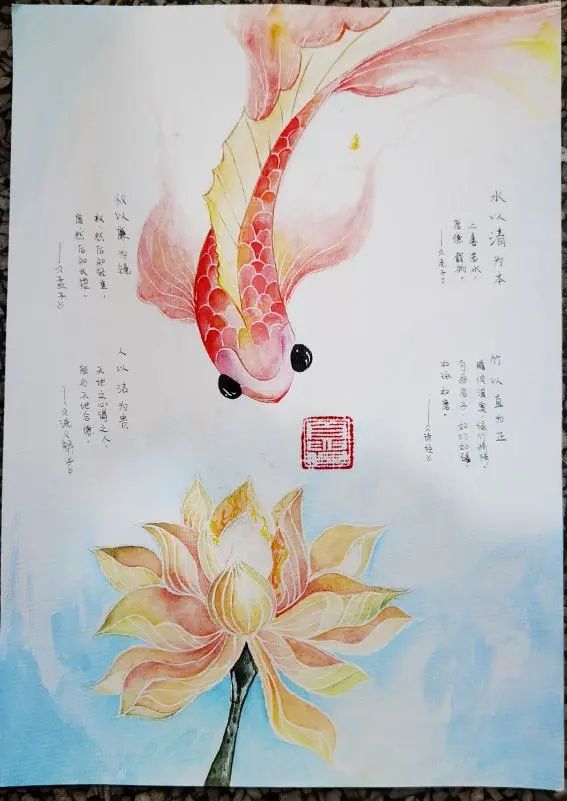 水以清为本
上善若水，
厚德载物。
——《老子》
竹以直为正
瞻彼淇奥，绿竹猗猗，
有匪君子，如切如磋，
如琢如磨。
——《诗经》
权以廉为镜
权，然后知轻重，
度，然后知长短。
——《孟子》
人以洁为贵
天地之心谓之人，
能与天地合德。
——《说文解字》